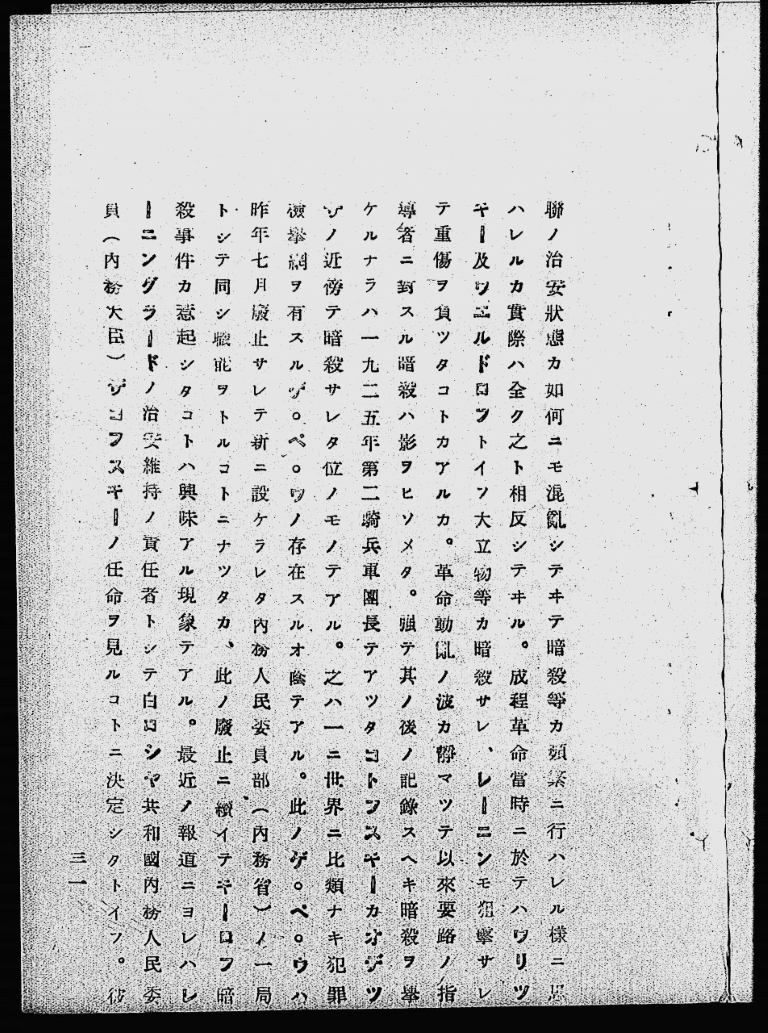 聯ノ治安狀態カ如何ニモ混亂シテヰテ暗殺等カ頻繁ニ行ハレル樣ニ思
ハレルカ實際ハ全ク之ト相反シテヰル。成程革命當時ニ於テハウリツ
キー及ウエルドロフトイフ大立物等カ暗殺サレ、レーニンモ狙擊サレ
テ重傷ヲ負ツタコトカアルカ。革命動亂ノ波カ靜マツテ以來要路ノ指
導者ニ對スル暗殺ハ影ヲヒソメタ。强テ其ノ後ノ記錄スヘキ暗殺ヲ擧
ケルナラハ一九二五年第二騎兵軍團長テアツタコトフスキーカオデツ
サノ近傍テ暗殺サレタ位ノモノテアル。之ハ一ニ世界ニ比類ナキ犯罪
檢擧網ヲ有スルゲ。ペ。ウノ存在スルオ蔭テアル。此ノゲ。ペ。ウハ
昨年七月廢止サレテ新ニ設ケラレタ內務人民委員部（內務省）ノ一局
トシテ同シ職能ヲトルコトニナツタカ、此ノ廢止ニ續イテキーロフ暗
殺事件カ惹起シタコトハ興味アル現象テアル。最近ノ報道ニヨレハレ
ーニングラードノ治安維持ノ責任者トシテ白ロシヤ共和國內務人民委
員（內務大臣）ザコフスキーノ任命ヲ見ルコトニ決定シタトイフ。彼
三一